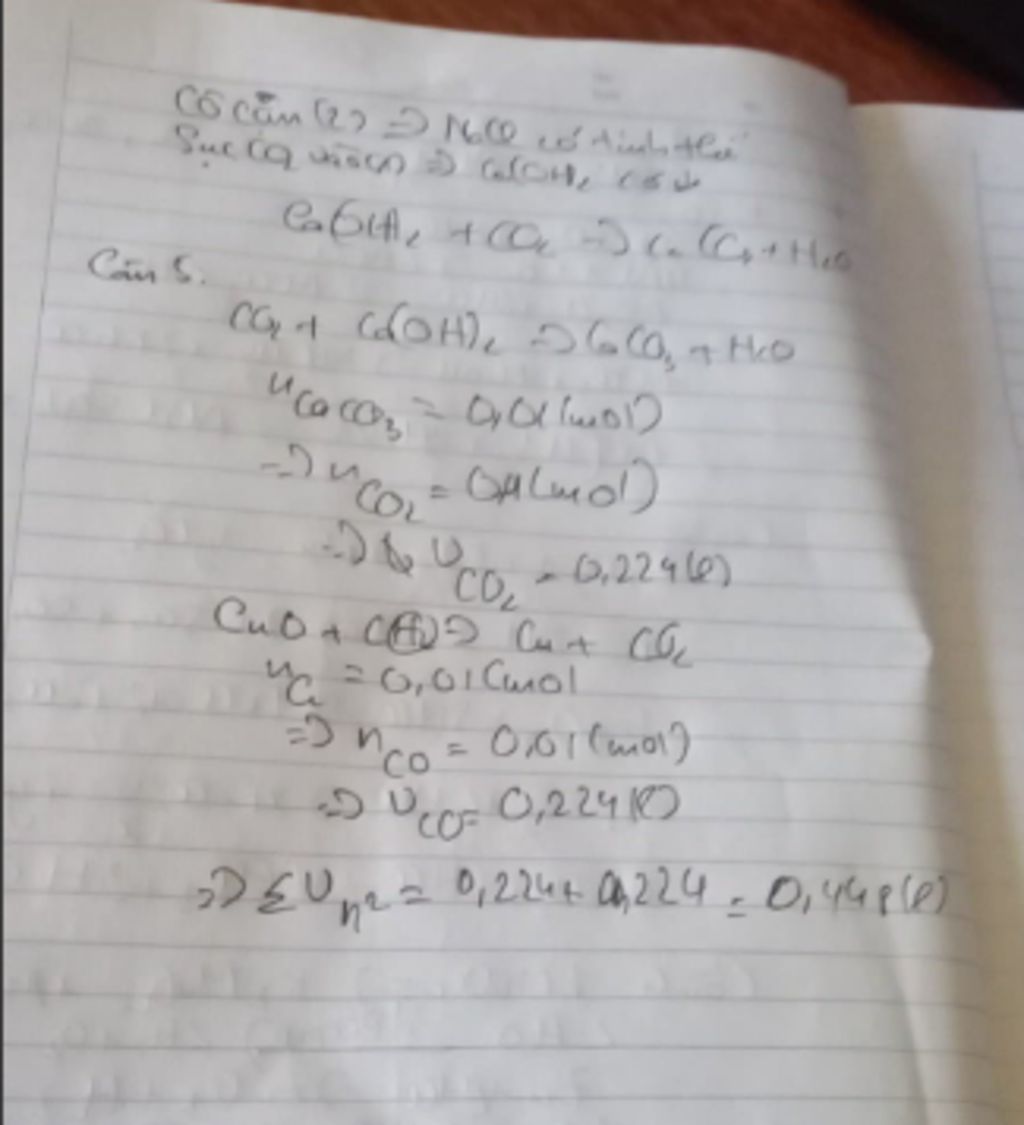 Cô cạn (2) => NaCl có tinh thể
Sục CO2 vào (1) => Ca(OH)2 có ↓
Ca(OH)2 + CO2 => CaCO3 + H2O
Câu 5.
CO2 + Ca(OH)2 => CaCO3 + H2O
nCaCO3 = 0,01(mol)
=> nCO2 = 0,01(mol)
=> VCO2 = 0,224(l)
CuO + CO => Cu + CO2
nCu = 0,01(mol
=> nCO = 0,01(mol)
=> VCO = 0,224(l)
=> ΣVh2 = 0,224 + 0,224 = 0,448(l)